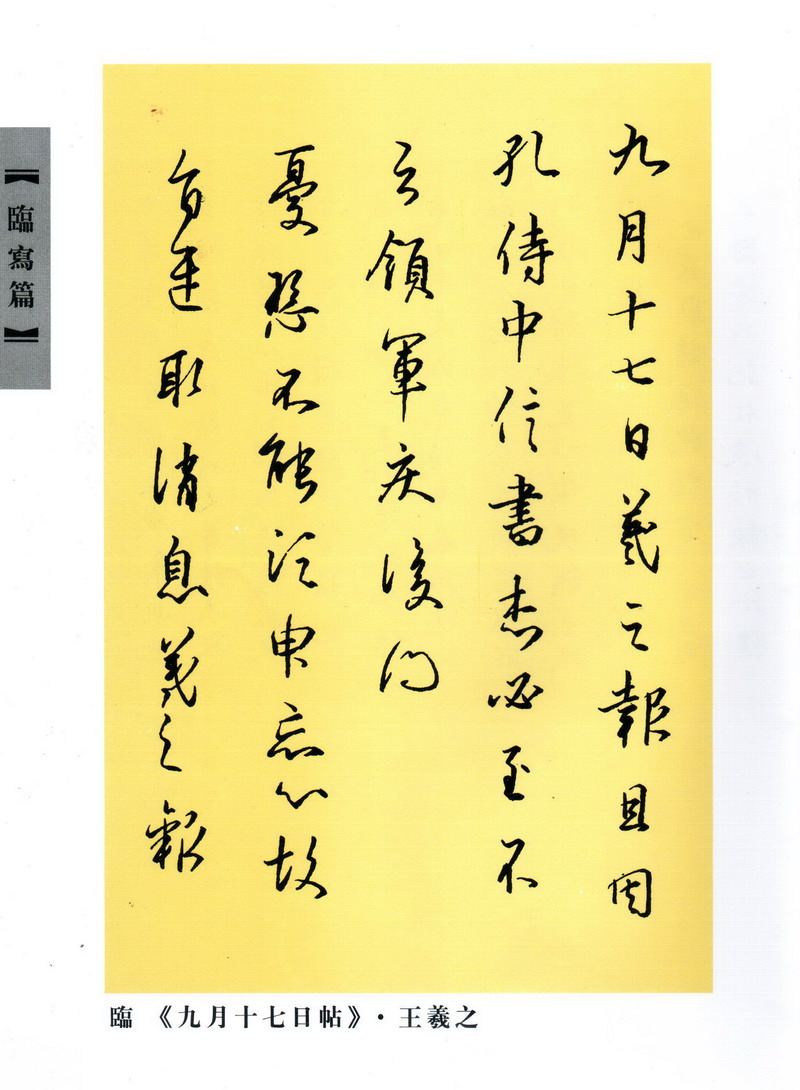 九月十七日羲之報且因
孔侍中信書想必至不
知領軍疾後問
憂懸不能須臾忘心故
旨遣取消息羲之報
【臨寫篇】
臨 《九月十七日帖》·王羲之